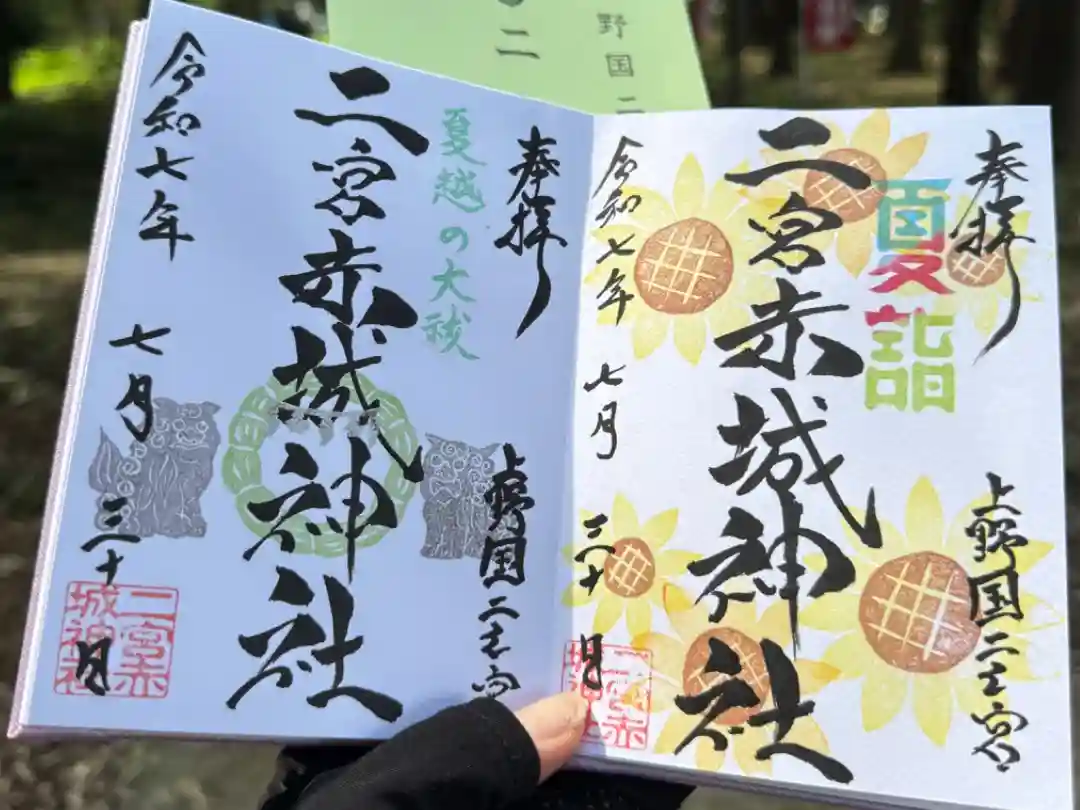 野国二
二
奉拝
上野国二之宮
夏詣
二宮赤城神社
令和七年
七月
三十日
奉拝
上野国二之宮
夏越の大祓
二宮赤城神社
令和七年
七月
三十日
二宮赤
城神社